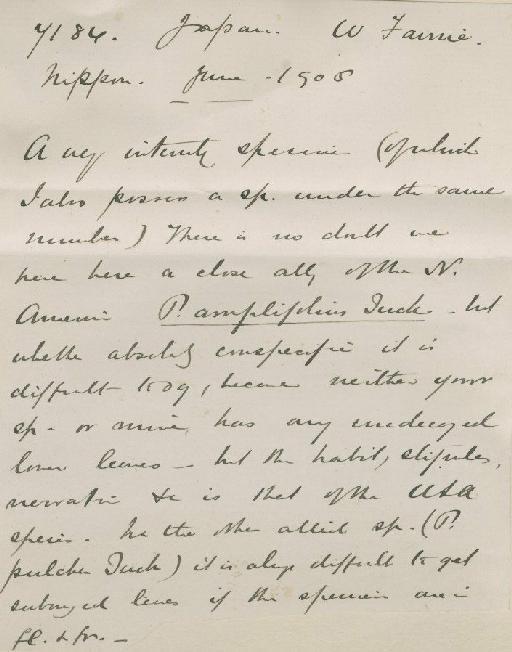 7184. Japan. W Faurie.
Nippon. June - 1905
A very interesting specimen (of which
I also possess a sp. under the same
number) There is no doubt we
have here a close ally of the N.
American P. amplifolius Tuck - but
whether absolutely conspecific it is
difficult to say, because neither your
sp. or mine, has any undecayed
lower leaves - but the habit, stipules,
nervation &c is that of the USA
species. In the other allied sp. (P.
pulcher Tuck) it is always difficult to get
submerged leaves if the specimen are in
fl. & fr. -